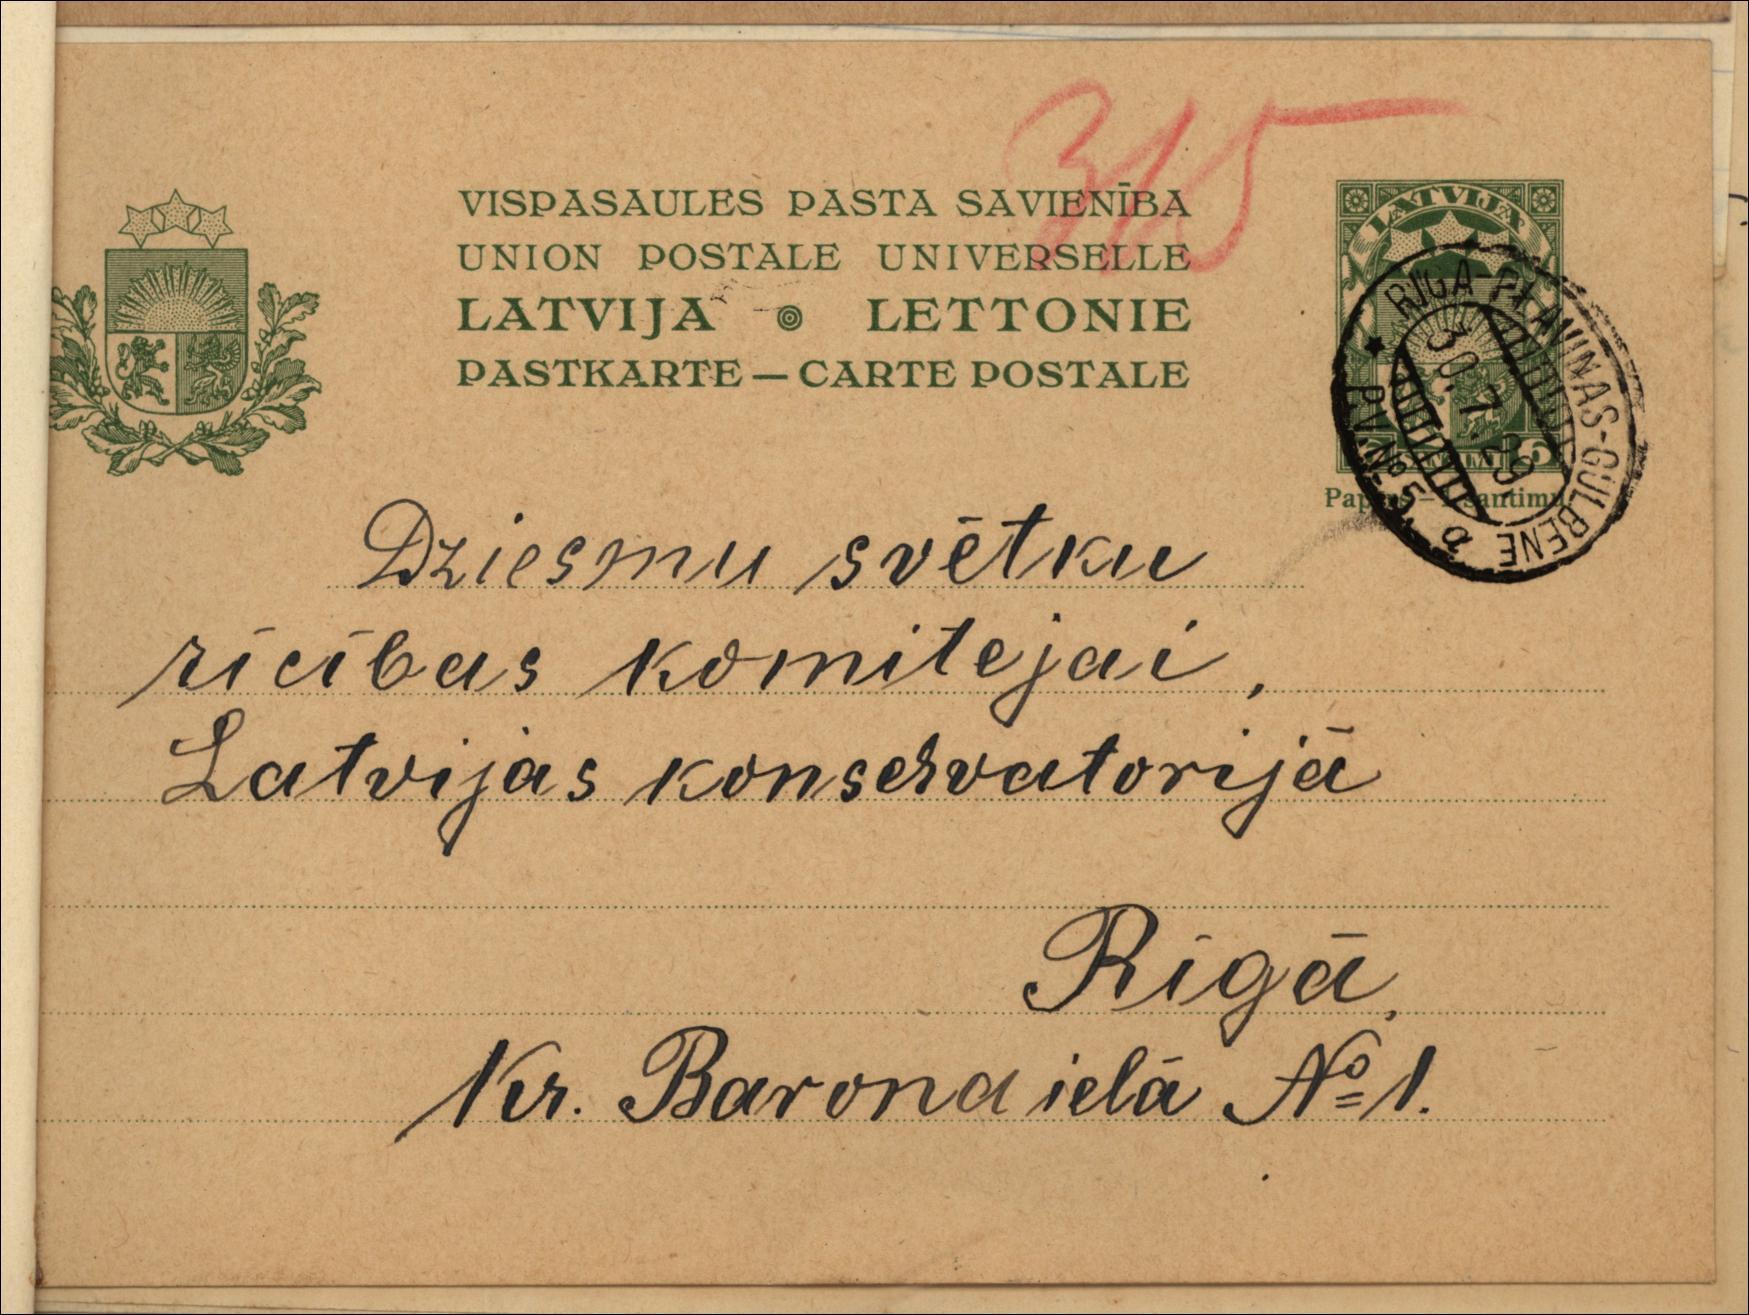 315
VISPASAULES PASTA SAVIENĪBA
UNION POSTALE UNIVERSELLE
LATVIJA LETTONIE
PASTKARTE — CARTE POSTALE
LATVIJA
RĪGA-PĻAVIŅAS-GULBENE
30.7.29
a
Dziesmu svētku
rīcības komitejai,
Latvijas konservatorijā
Rīgā,
Kr. Barona ielā № 1.